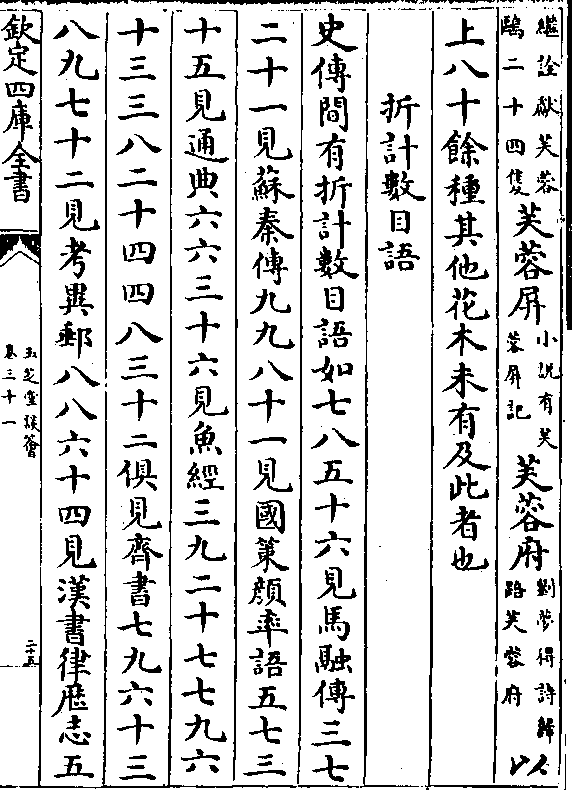 繼詮獻芙蓉
鷗二十四隻
芙蓉屏
小説有芙
蓉屏記
芙蓉府
劉夢得詩歸
路芙蓉府
以
上八十餘種其他花木未有及此者也
折計數目語
史傳間有折計數目語如七八五十六見馬融傳三七
二十一見蘇秦傳九九八十一見國策顔率語五七三
十五見通典六六三十六見魚經三九二十七七九六
十三三八二十四四八三十二俱見齊書七九六十三
八九七十二見考異郵八八六十四見漢書律厯志五
欽定四庫全書
玉芝堂談薈
卷三十一
二十五